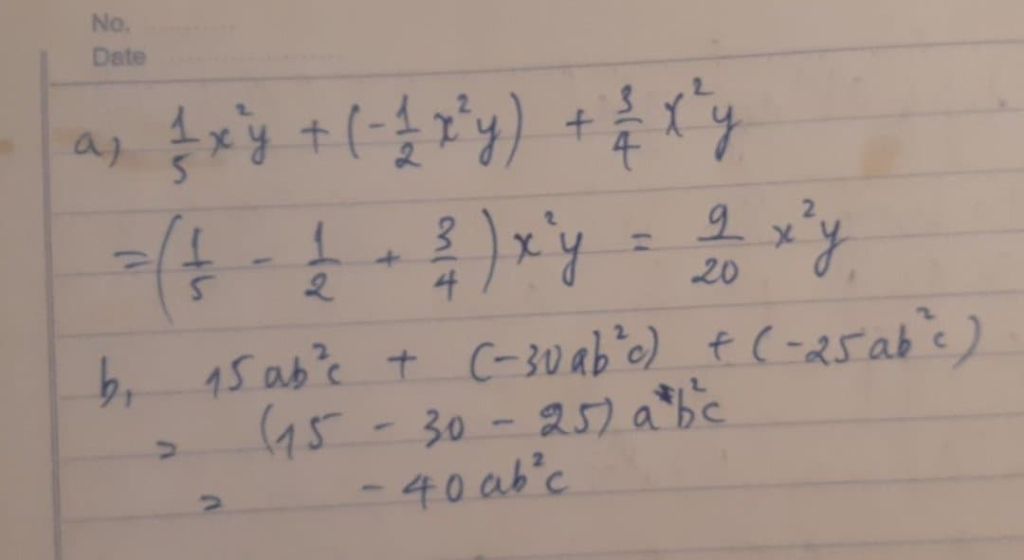 No. ............
Date ....................
a, 1/5 x²y + (-1/2 x²y) + 3/4 x²y
= (1/5 - 1/2 + 3/4) x²y = 9/20 x²y
b, 15ab²c + (-30ab²c) + (-25ab²c)
= (15 - 30 - 25) ab²c
= -40ab²c